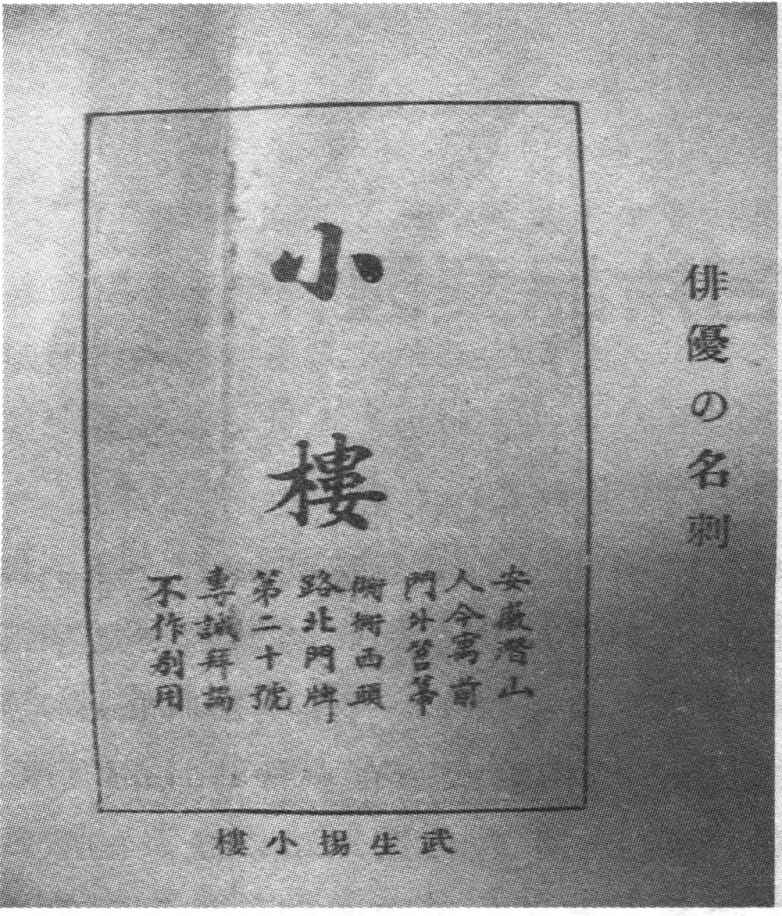 俳優の名刺
小樓
安徽潛山
人今寓前
門外笤箒
衚衕西頭
路北門牌
第二十號
專誠拜謁
不作别用
武生楊小樓